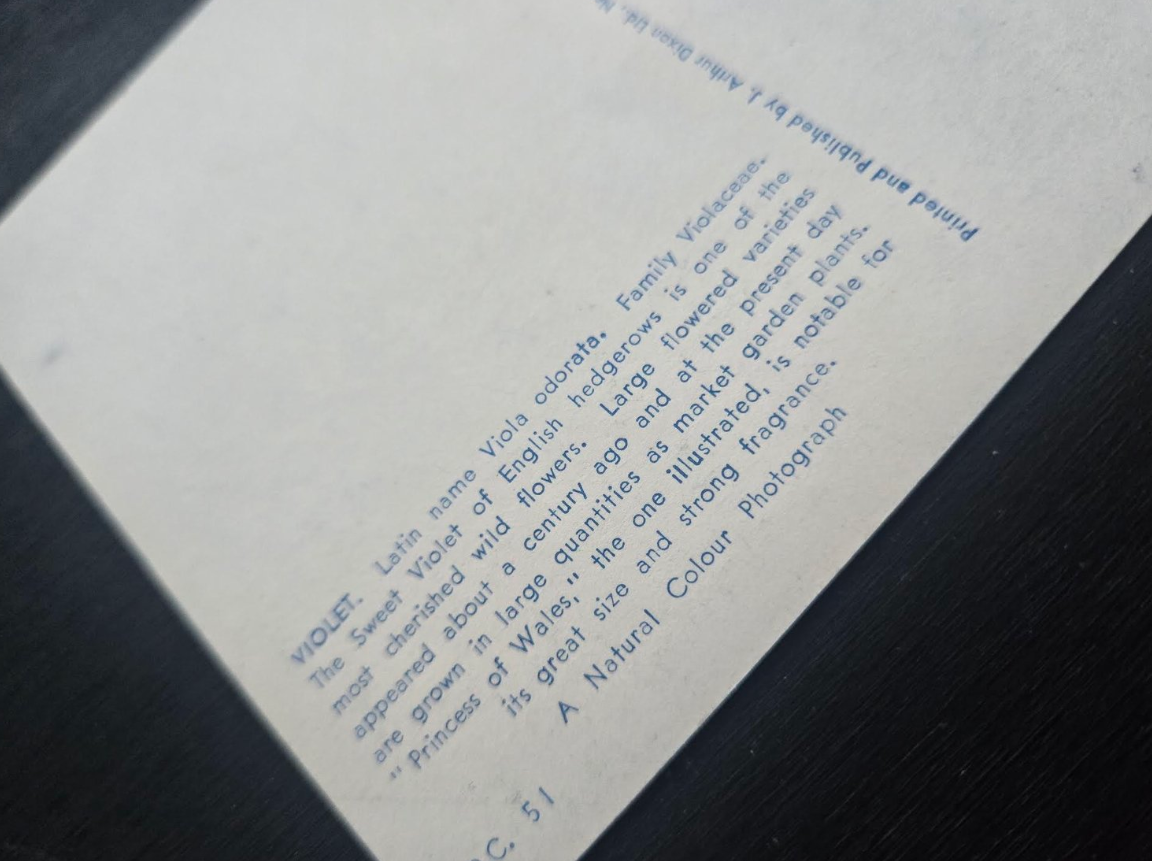 VIOLET. Latin name Viola odorata. Family Violaceae.
The Sweet Violet of English hedgerows is one of the
most cherished wild flowers. Large flowered varieties
appeared about a century ago and at the present day
are grown in large quantities as market garden plants.
"Princess of Wales," the one illustrated, is notable for
its great size and strong fragrance.
A Natural Colour Photograph
C. 51
Printed and Published by J. Arthur Dixon Ltd.